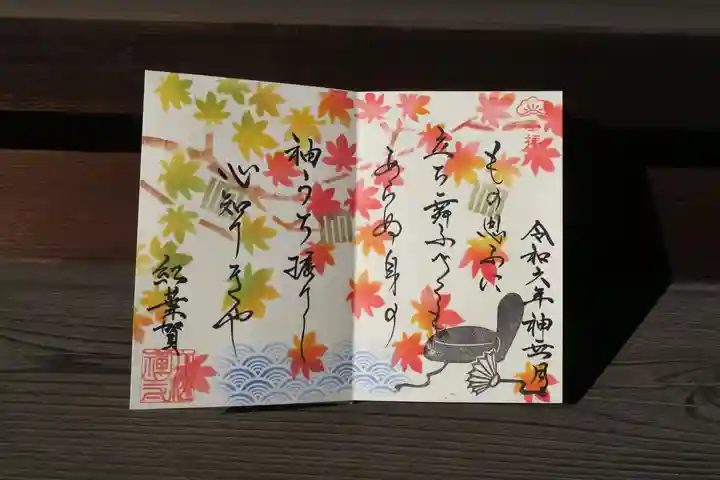 令和六年神無月
もの思ふに
立ち舞ふべくも
あらぬ身の
袖うち振りし
心知りきや
紅葉賀